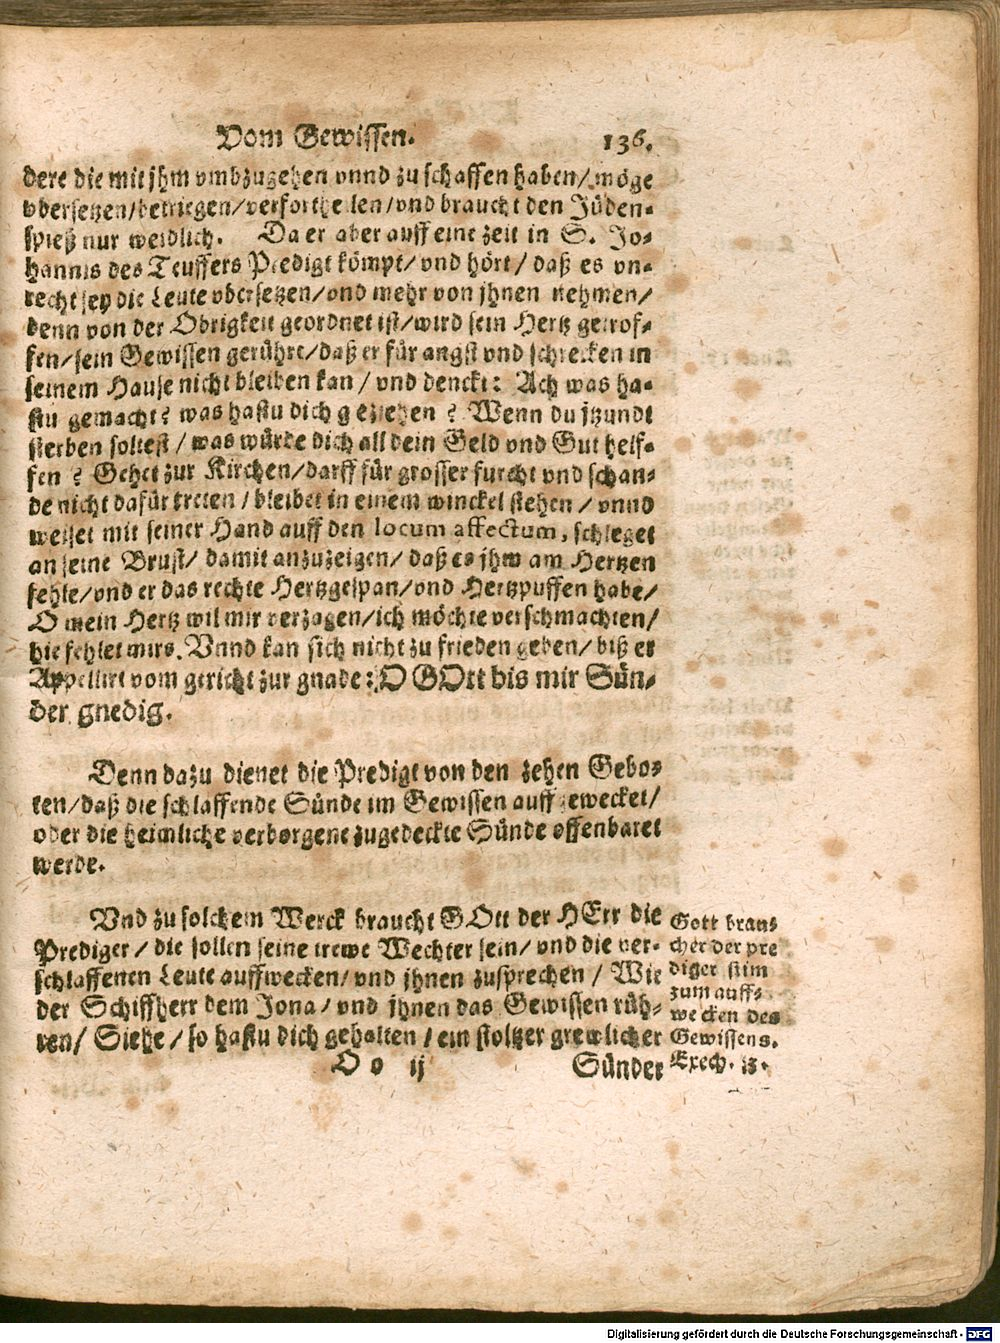 Vom Gewissen. 136.
dere die mit jhm vmbzugehen vnnd zu schaffen haben/ möge
vbersetzen/betriegen/verfortheilen/vnd braucht den Jüden-
spieß nur weidlich. Da er aber auff eine zeit in S. Jo-
hannis des Teuffers Predigt kömpt/ vnd hört/ daß es vn-
recht sey die Leute vbersetzen/ vnd mehr von jhnen nehmen/
denn von der Obrigkeit geordnet ist/ wird sein Hertz getrof-
fen/ sein Gewissen gerührt/ daß er für angst vnd schrecken in
seinem Hause nicht bleiben kan/ vnd denckt: Ach was ha-
stu gemacht? was hastu dich geziehen? Wenn du jtzundt
sterben soltest/ was würde dich all dein Geld vnd Gut helf-
fen? Gehet zur Kirchen/ darff für grosser furcht vnd schan-
de nicht dafür treten/ bleibet in einem winckel stehen/ vnnd
weiset mit seiner Hand auff den locum affectum, schleget
an seine Brust/ damit anzuzeigen/ daß es jhm am Hertzen
fehle/ vnd er das rechte Hertzgespan/ vnd Hertzpuffen habe/
O mein Hertz wil mir verzagen/ ich möchte verschmachten/
hie fehlet mirs. Vnnd kan sich nicht zu frieden geben/ biß er
Appellirt vom gericht zur gnade: O GOtt bis mir Sün-
der gnedig.
Denn dazu dienet die Predigt von den zehen Gebo-
ten/ daß die schlaffende Sünde im Gewissen auffgewecket/
oder die heimliche verborgene zugedeckte Sünde offenbaret
werde.
Vnd zu solchem Werck braucht GOtt der HErr die
Prediger/ die sollen seine trewe Wechter sein/ vnd die ver-
schlaffenen Leute auffwecken/ vnd jhnen zusprechen/ Wie
der Schiffherr dem Jona/ vnd jhnen das Gewissen rüh-
ren/ Siehe/ so hastu dich gehalten/ ein stoltzer grewlicher
Gott brau-
cher der pre
diger stim
zum auff-
wecken des
Gewissens.
Ezech.
O o ij Sünder
Digitalisierung gefördert durch die Deutsche Forschungsgemeinschaft - DFG